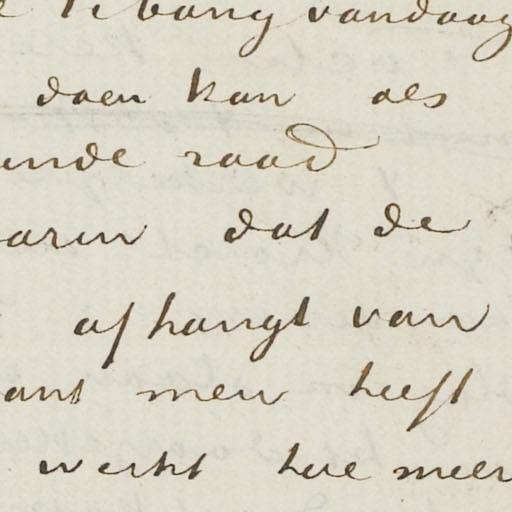 te bang vandaag
doen kan als
ende raad
aren dat de
afhangt van
ant men heeft
werkt hoe meer